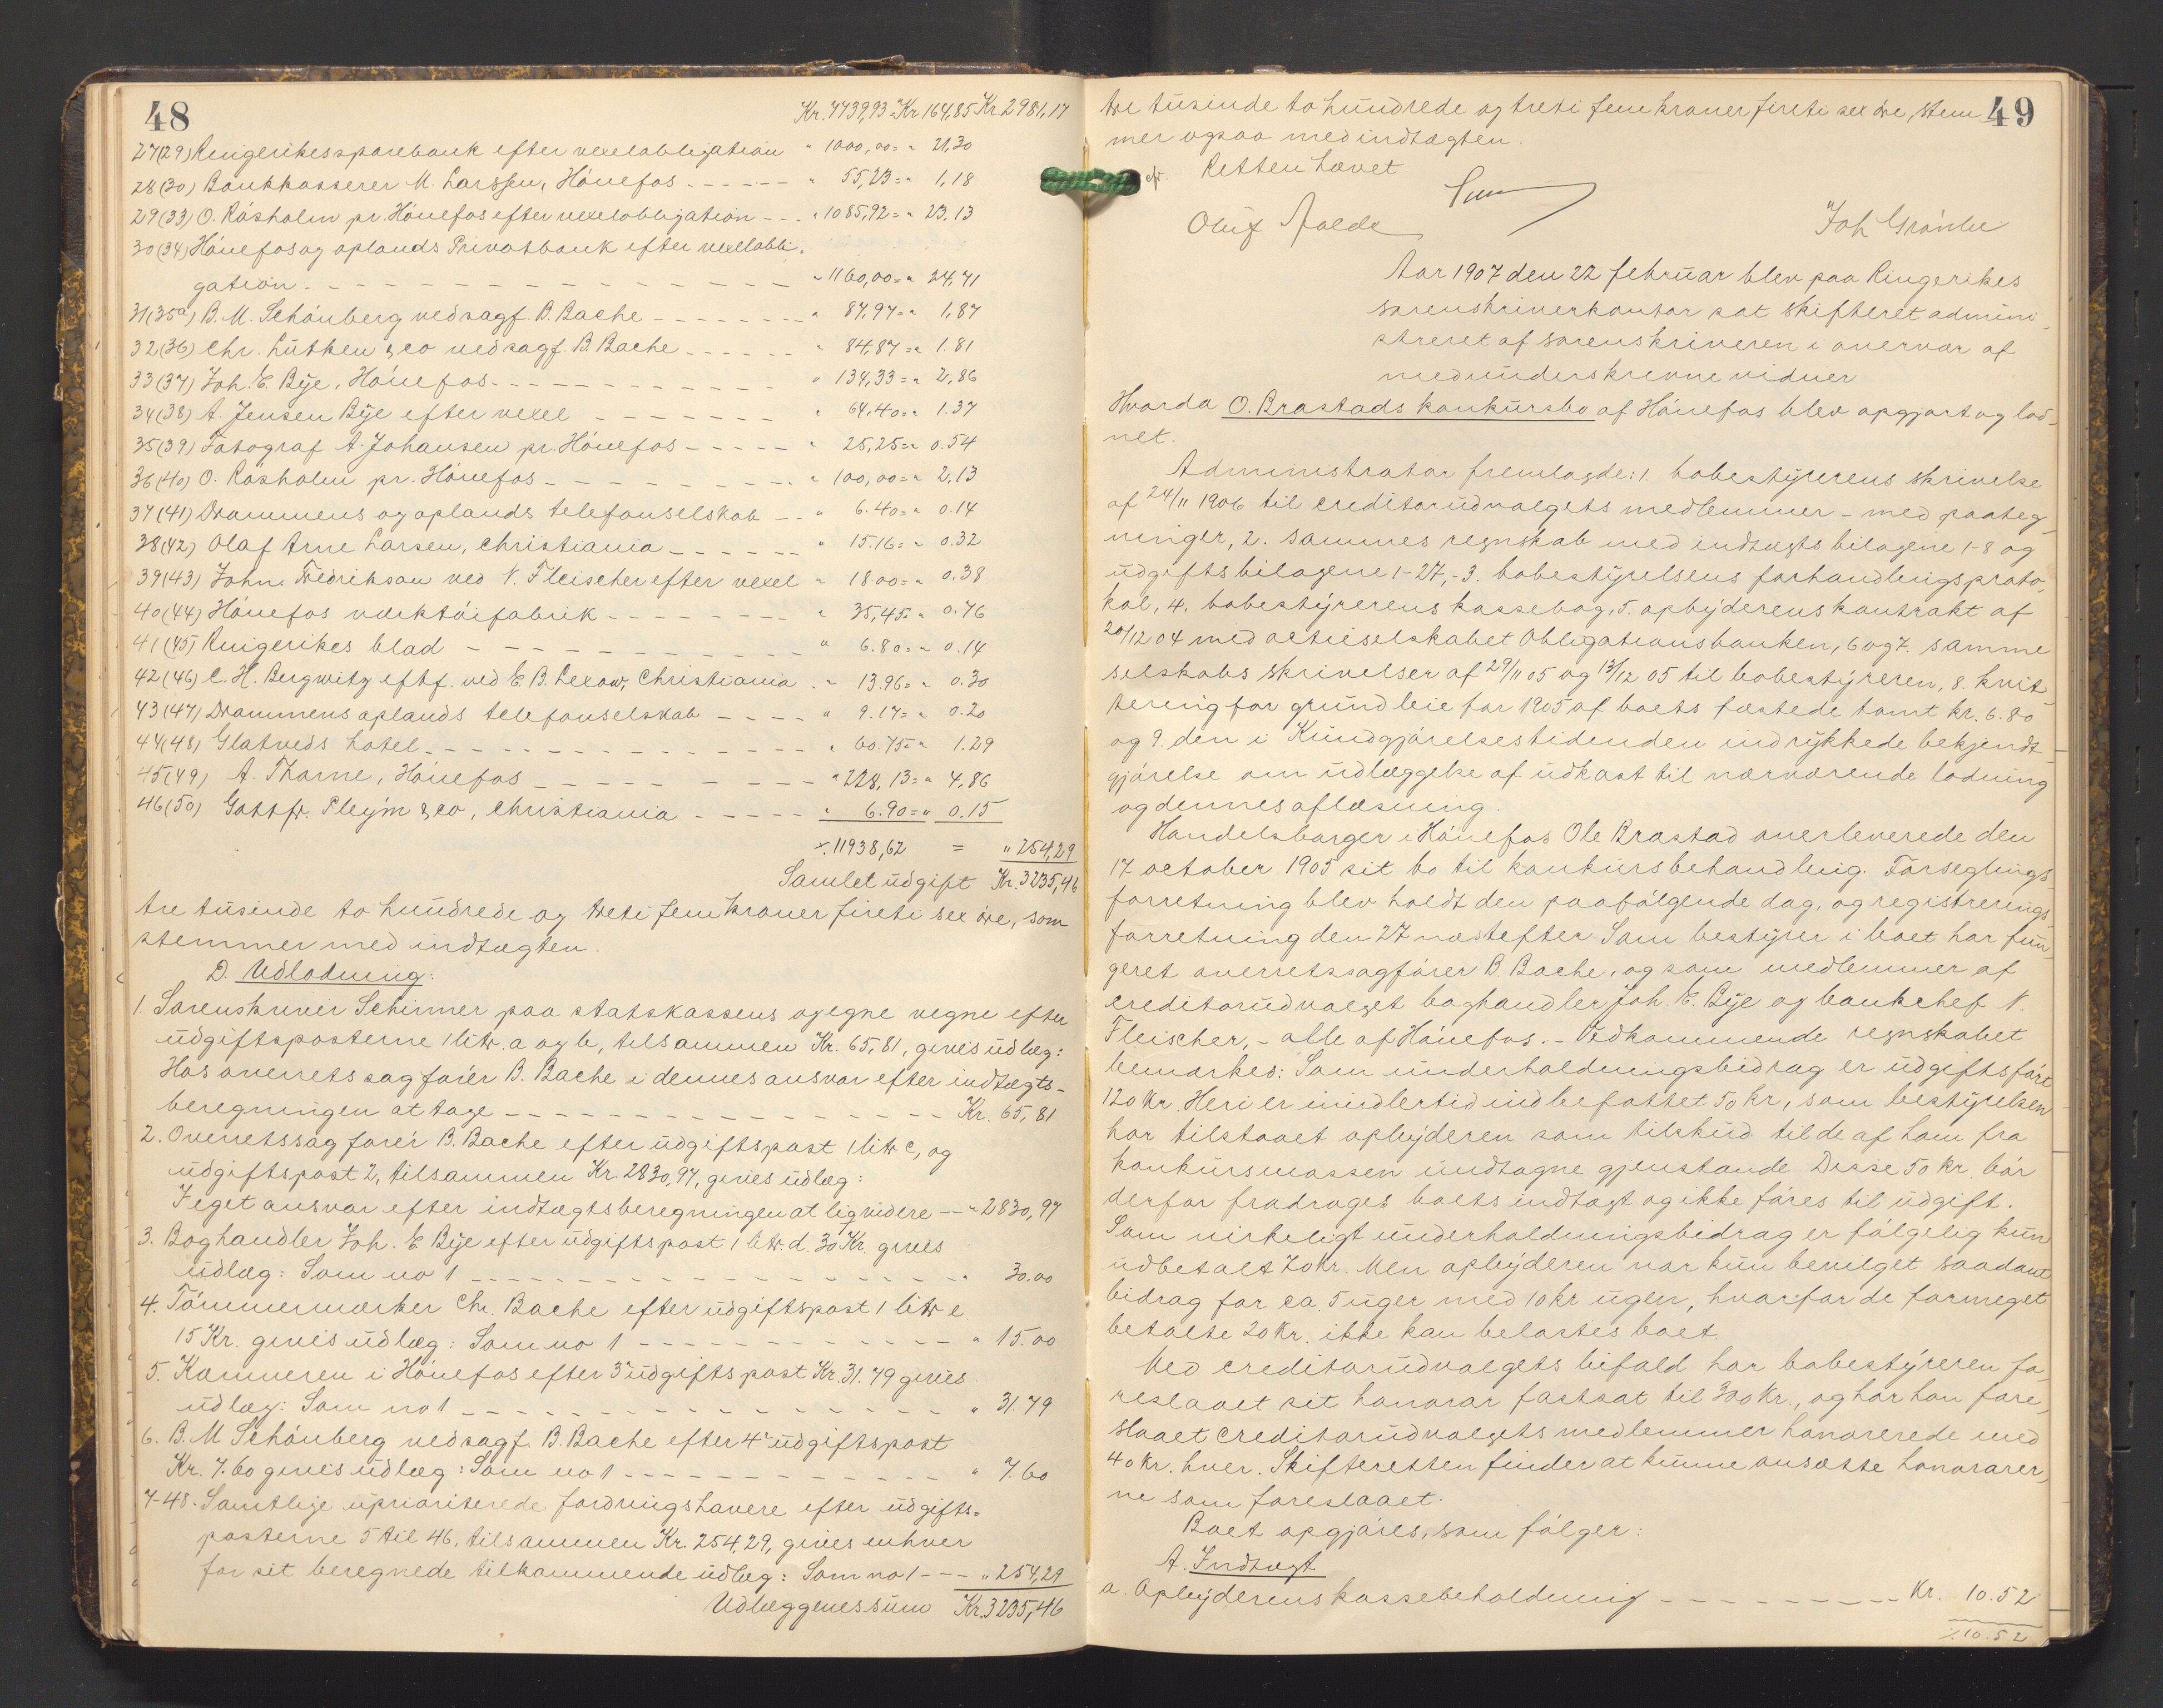 48
Kr. 7739,93 = Kr. 164,85 Kr. 2981,17
27(29) Ringerikes sparebank efter vexelobligation " 1000,00 = " 21,30
28(30) Bankkasserer M. Larssen, Hönefos " 55,23 = " 1,18
29(33) O. Råsholm pr. Hönefos efter vexelobligation " 1085,92 = " 23.13
30(34) Hönefos og oplands Privatbank efter vexelobli-
gation " 1160,00 = " 24,71
31(35a) B. M. Schönberg ved sagf. B. Bache " 87,97 = " 1,87
32(36) Chr. Lütken & co ved sagf. B. Bache " 84,87 = " 1.81
33(37) Joh. E. Bye, Hönefos " 134,33 = " 2,86
34(38) A. Jensen Bye efter vexel " 64,40 = " 1.37
35(39) Fotograf A. Johansen pr. Hönefos " 25,25 = " 0.54
36(40) O. Råsholm pr. Hönefos " 100,00 = " 2,13
37(41) Drammens og oplands telefonselskab " 6.40 = " 0.14
38(42) Olaf Arne Larsen, Christiania " 15.16 = " 0.32
39(43) John. Fredrikson ved N. Fleischer efter vexel " 18.00 = " 0.38
40(44) Hönefos værktöifabrik " 35,45 = " 0.76
41(45) Ringerikes blad " 6.80 = " 0.14
42(46) C. H. Bergwitz eftf. ved E. B. Lexow, Christiania " 13.96 = " 0.30
43(47) Drammens oplands telefonselskab " 9.17 = " 0.20
44(48) Glatveds hotel " 60.75 = " 1.29
45(49) A. Thorne, Hönefos " 228,13 = " 4,86
46(50) Gottfr. Pleym & co, Christiania " 6.90 = " 0.15
÷ 11938,62 = " 254,29
Samlet udgift Kr. 3235,46
tre tusinde to hundrede og treti fem kroner firti sex öre, som
stemmer med indtægten.
D. Udlodning:
1. Sorenskriver Schirmer paa statskassens og egne vegne efter
udgiftsposterne 1 litr. a og b, tilsammen Kr. 65,81, gives udlæg:
Hos overretssagförer B. Bache i dennes ansvar efter indtægts-
beregningen at tage Kr. 65,81
2. Overretssagförer B. Bache efter udgiftspost 1 litr c, og
udgiftspost 2, tilsammen Kr 2830,97, gives udlæg:
I eget ansvar efter indtægtsberegningen at liqvidere " 2830,97
3. Boghandler Joh. E Bye efter udgiftspost 1 litr d. 30 Kr. gives
udlæg: Som no 1 " 30.00
4. Tömmermærker Chr. Bache efter udgiftspost 1 litr e
15 Kr. gives udlæg: Som no 1 " 15.00
5. Kæmneren i Hönefos efter 3' udgiftspost Kr. 31.79 gives
udlæg: Som no 1 " 31.79
6. B. M Schönberg ved sagf. B. Bache efter 4' udgiftspost
Kr. 7.60 gives udlæg: Som no 1 " 7.60
7-48. Samtlige uprioriterede fordringshavere efter udgifts-
posterne 5 til 46, tilsammen Kr. 254,29, gives enhver
for sit beregnede tilkommende udlæg: Som no 1 " 254,29
Udlæggenes sum Kr. 3235,46
49
tre tusinde to hundrede og treti fem kroner fireti sex öre, stem
mer ogsaa med indtægten.
Retten hævet
Oluf
Aar 1907 den 22 februar blev paa Ringerikes
sorenskriverkontor sat skifteret admini-
streret af sorenskriveren i overvær af
medunderskrevne vidner
Hvorda O. Brastads konkursbo af Hönefos blev opgjort og lod-
net.
Administrator fremlagde: 1. bobestyrerens skrivelse
af 24/11 1906 til creditorudvalgets medlemmer - med paateg-
ninger, 2. sammes regnskab med indtægtsbilagene 1-8 og
udgiftsbilagene 1-27, - 3. bobestyrelsens forhandlingsproto-
kol, 4. bobestyrerens kassebog, 5. opbyderens kontrakt af
20/12 04 med actieselskabet Obligationsbanken, 6 og 7. samme
selskabs skrivelser af 29/11 05 og 13/12 05 til bobestyreren, 8. kvit-
tering for grundleie for 1905 af boets fæstede tomt kr. 6.80
og 9. den i Kundgjörelsestidenden indrykkede bekjendt-
gjörelse om udlæggelse af udkast til nærværende lodning
og dennes aflæsning.
Handelsborger i Hönefos Ole Brastad overleverede den
17 october 1905 sit bo til konkursbehandling. Forseglings-
forretning blev holdt den paafölgende dag, og registrerings-
forretning den 27 næstefter. Som bestyrer i boet har fun-
geret overretssagförer B. Bache, og som medlemmer af
creditorudvalget boghandler Joh. E. Bye og bankchef N.
Fleischer, - alle af Hönefos. - Vedkommende regnskabet
bemærkes: Som underholdningsbidrag er udgiftsfört
120 Kr. Heri er imidlertid indbefattet 50 kr, som bestyrelsen
har tilstaaet opbyderen som tilskud til de af ham fra
konkursmassen undtagne gjenstande. Disse 50 kr. bör
derfor fradrages boets indtægt og ikke föres til udgift.
Som virkeligt underholdningsbidrag er fölgelig kun
udbetalt 70 kr. Men opbyderen var kun bevilget saadant
bidrag for ca. 5 uger med 10 kr ugen, hvorfor de formeget
betalte 20 kr. ikke kan belastes boet.
Med creditorudvalgets bifald har bobestyreren fo-
reslaaet sit honorar fastsat til 300 Kr., og har han fore-
slaaet creditorudvalgets medlemmer honorerede med
40 kr. hver. Skifteretten finder at kunne ansætte honorarer-
ne som foreslaaet.
Boet opgjöres, som fölger:
A. Indtægt
a. Opbyderens kassebeholdning Kr. 10.52
÷ 10.52